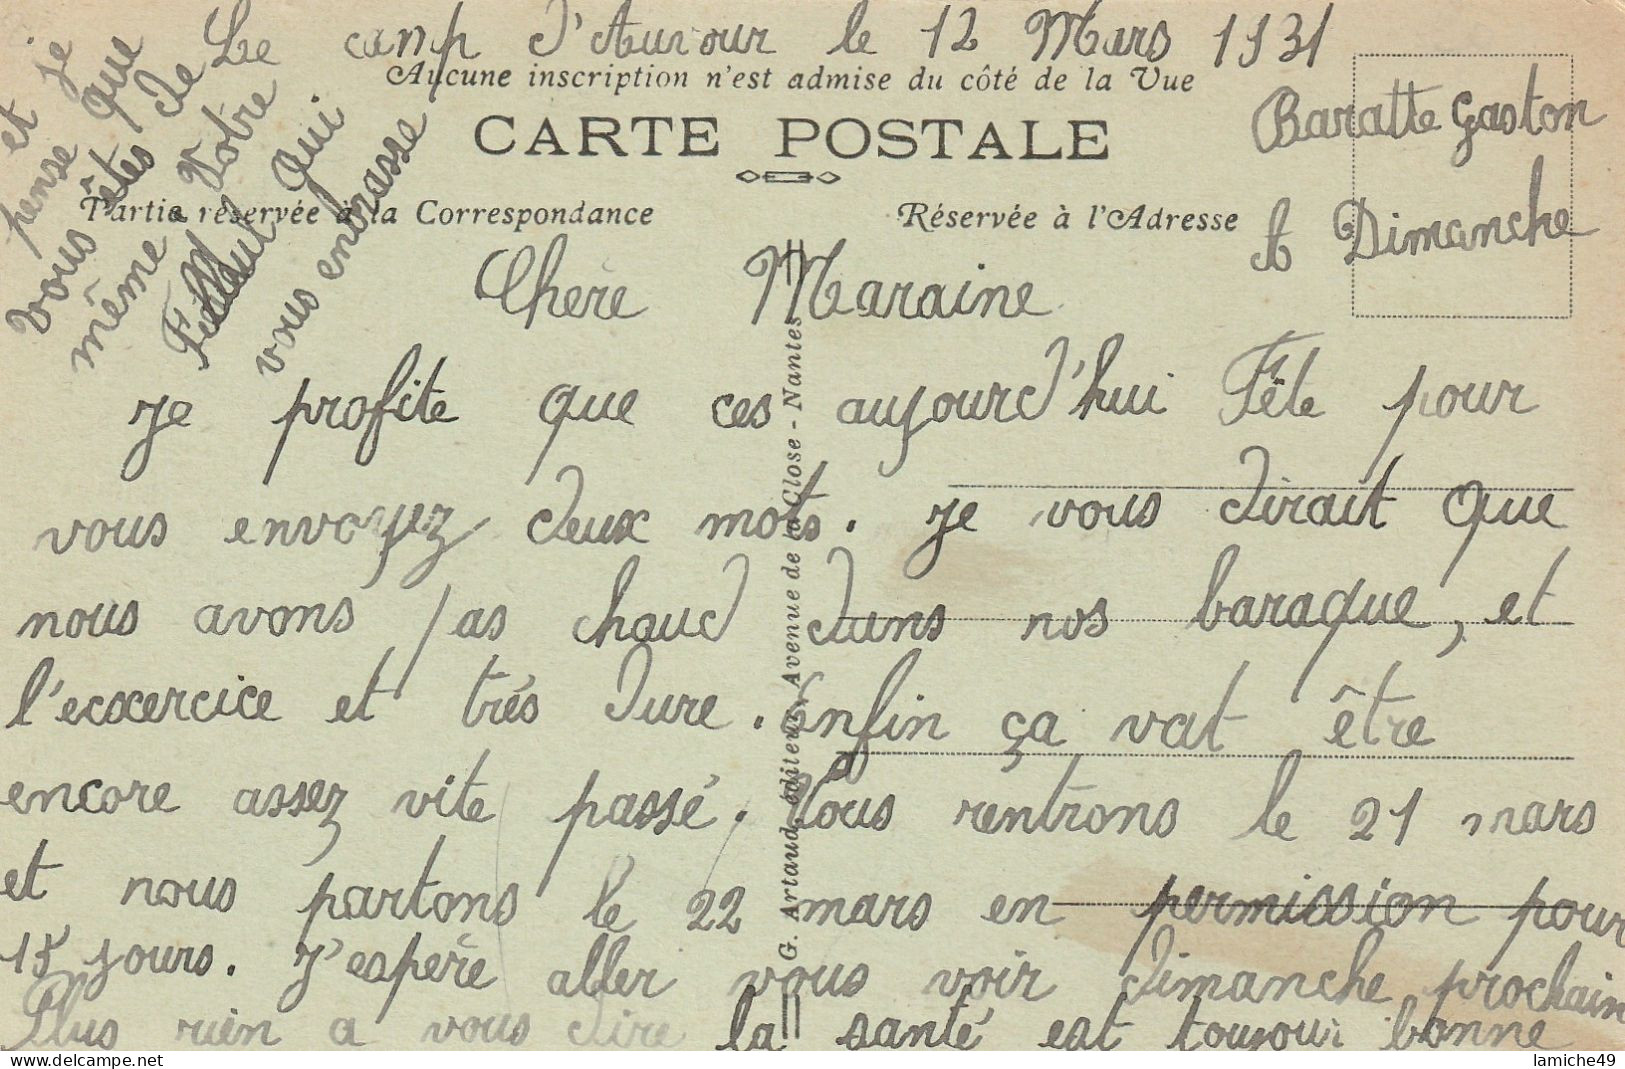 Le camp d'Auvour le 12 Mars 1931
Aucune inscription n'est admise du côté de la Vue
CARTE POSTALE
Baratte Gaston
A Dimanche
Partie réservée à la Correspondance
Réservée à l'Adresse
Chère Maraine
je profite que ces aujourd'hui Fête pour
vous envoyez deux mots. je vous dirait que
nous avons pas chaud dans nos baraque, et
l'ecxercice et trés dure. enfin ça vat être
encore assez vite passé. Nous rentrons le 21 mars
et nous partons le 22 mars en permission pour
15 jours. J'espère aller vous voir dimanche prochain
Plus rien a vous dire la santé est toujour bonne
et je
pense que
vous êtes de
même Votre
Filleul qui
vous enbrasse
G. Artaud, éditeur, Avenue de la Close - Nantes
lamiche49